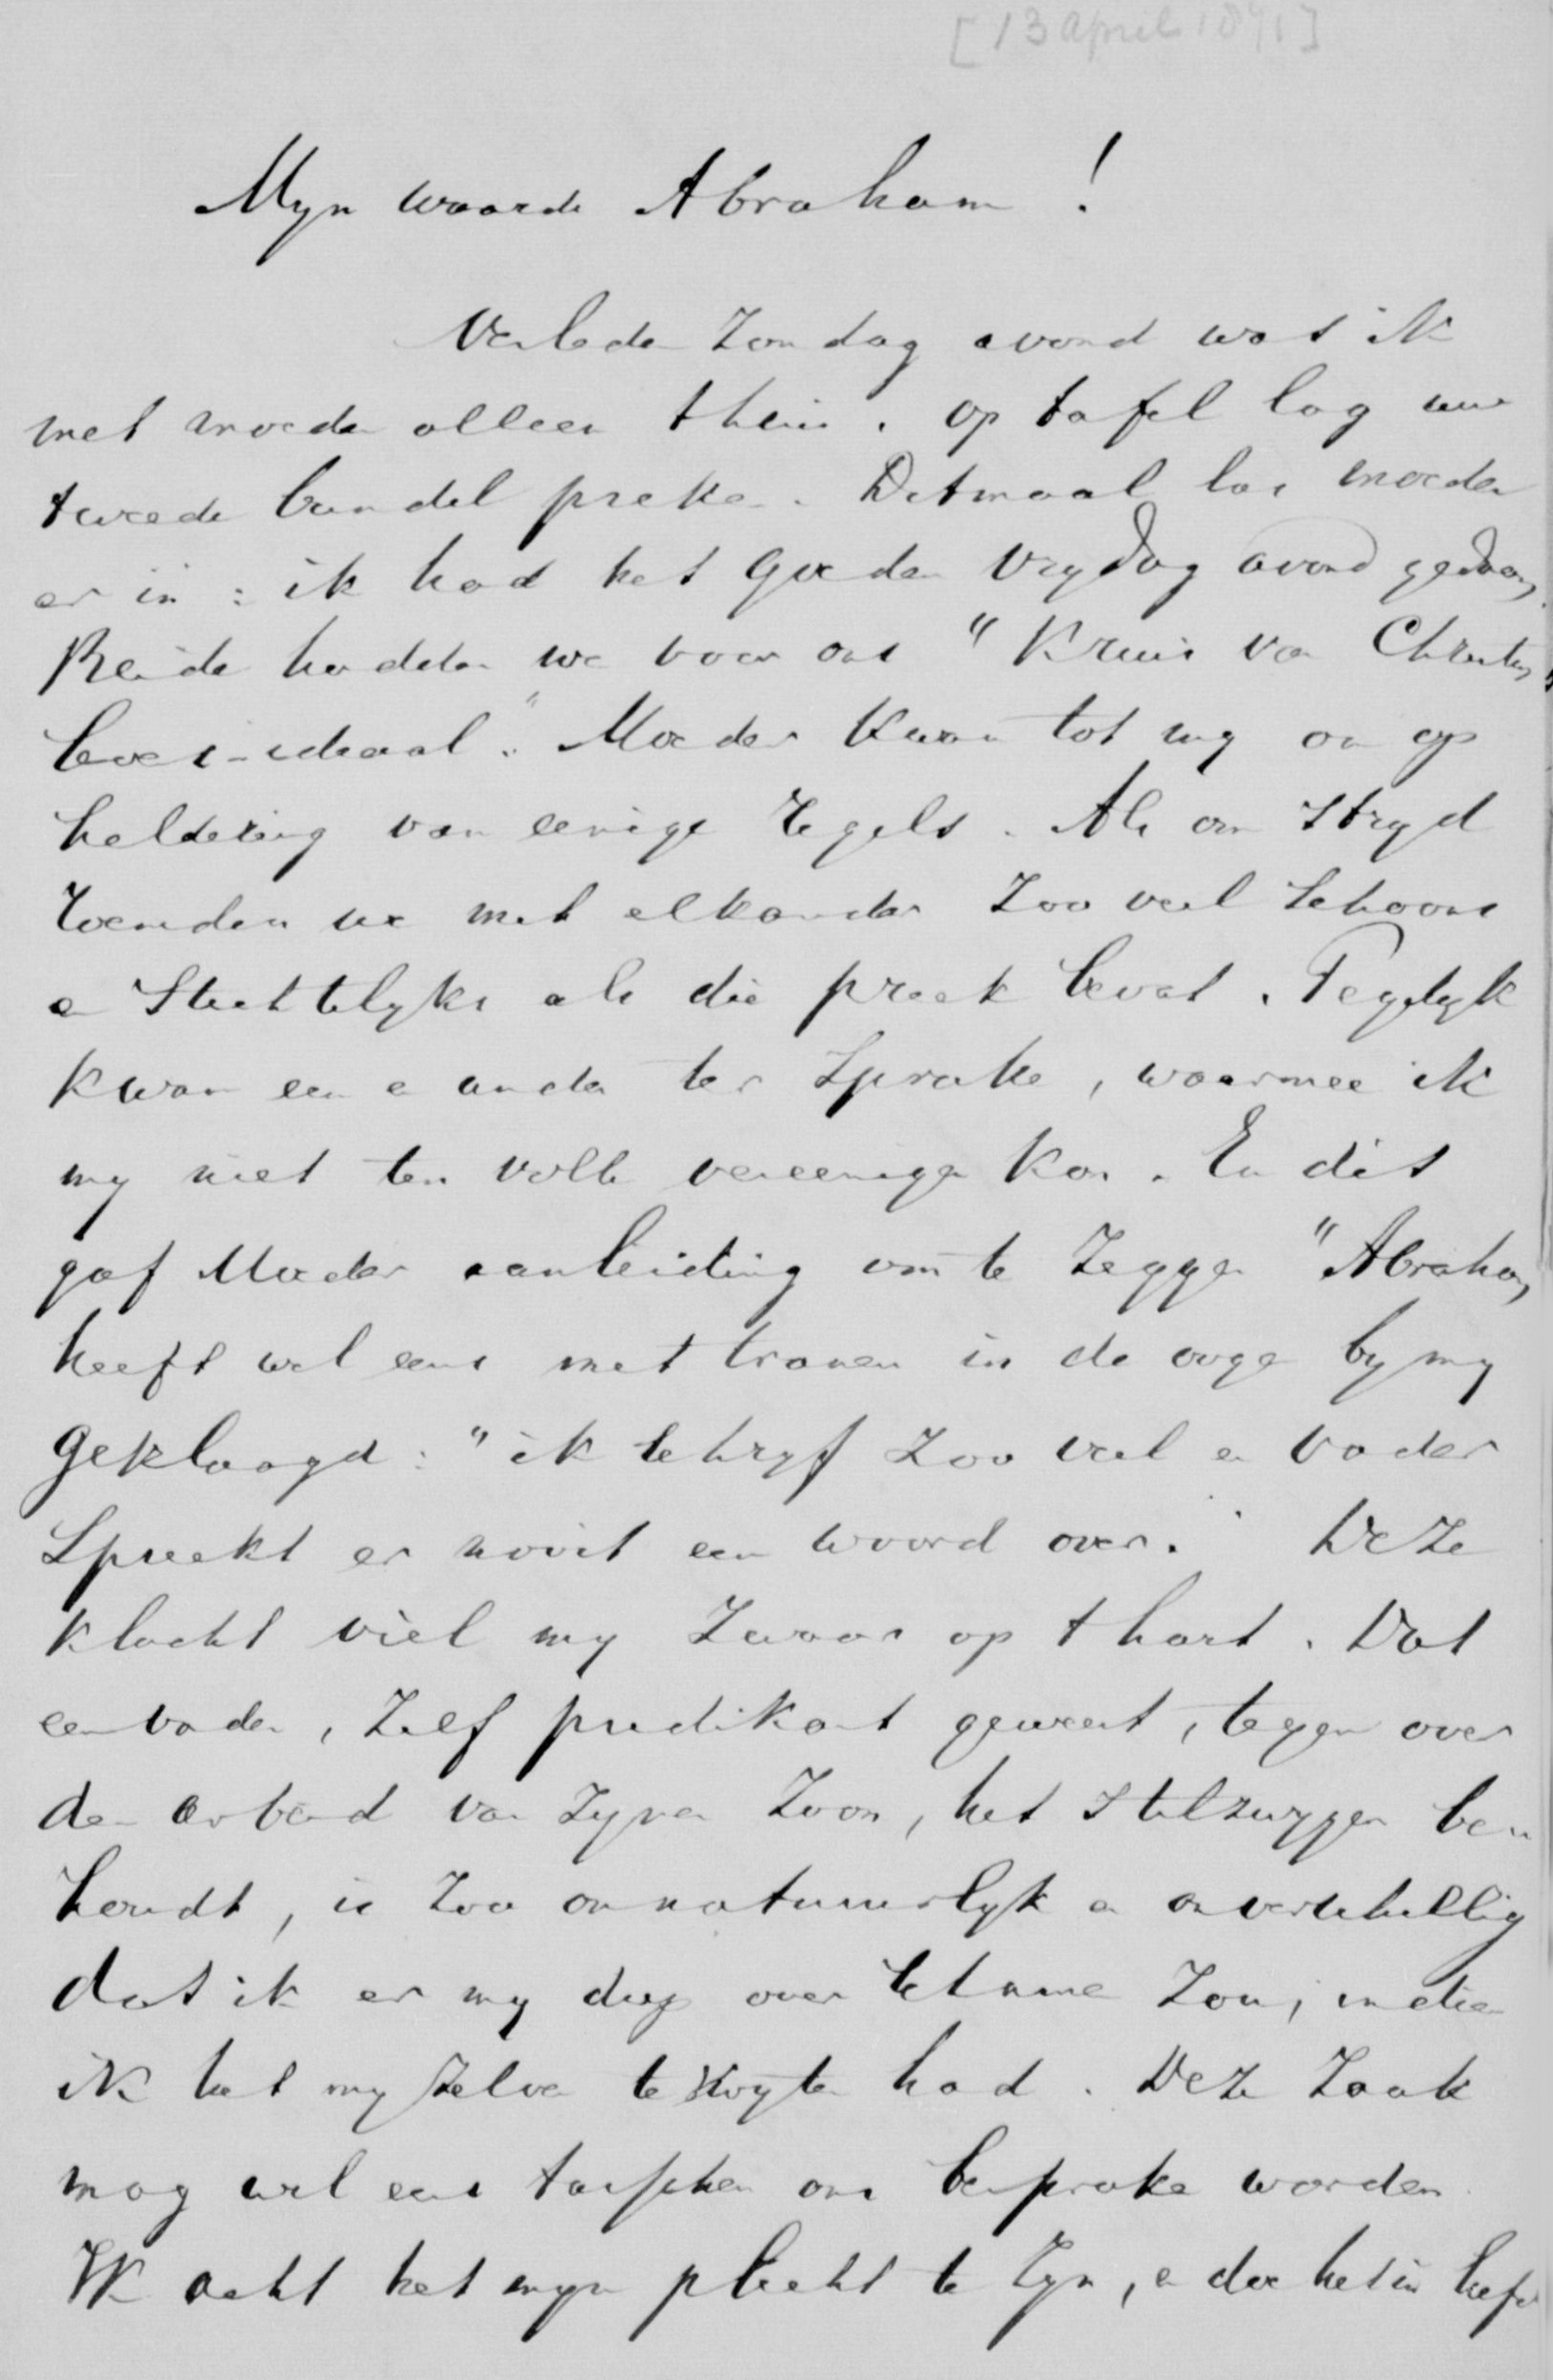 [13 april 1891]
Myn waarde Abraham!
Verleden Zondag avond was ik
met moeder alleen thuis. op tafel lag uw
tweede bundel preken. Ditmaal las moeder
er in: ik had het Goeden Vrydag avond gedaan.
Beide hadden we voor ons "Kruis van Christus,
levens-ideaal". Moeder kwam tot my om op
heldering van eenige regels. Als om stryd
roemden we met elkander Zoo veel schoons
en Stichtelyks als die preek bevat. Tegelyk
kwam een en ander ter Sprake, waarmee ik
my niet ten volle vereenigen kon. En dit
gaf Moeder aanleiding om te Zeggen "Abraham
heeft wel eens met tranen in de oogen by my
geklaagd: "ik schryf Zoo veel en Vader
Spreekt er nooit een woord over." Deze
klacht viel my Zwaar op t hart. Dat
een vader, Zelf predikant geweest, tegen over
den arbeid van Zynen Zoon, het Stilzwygen be„
houdt, is Zoo onnatuurlyk en onverschillig
dat ik er my diep over schamen Zou, indien
ik het my Zelven te wyten had. Deze Zaak
mag wel eens tusschen ons besproken worden.
Ik acht het myn plicht te Zyn, en doe het in liefde